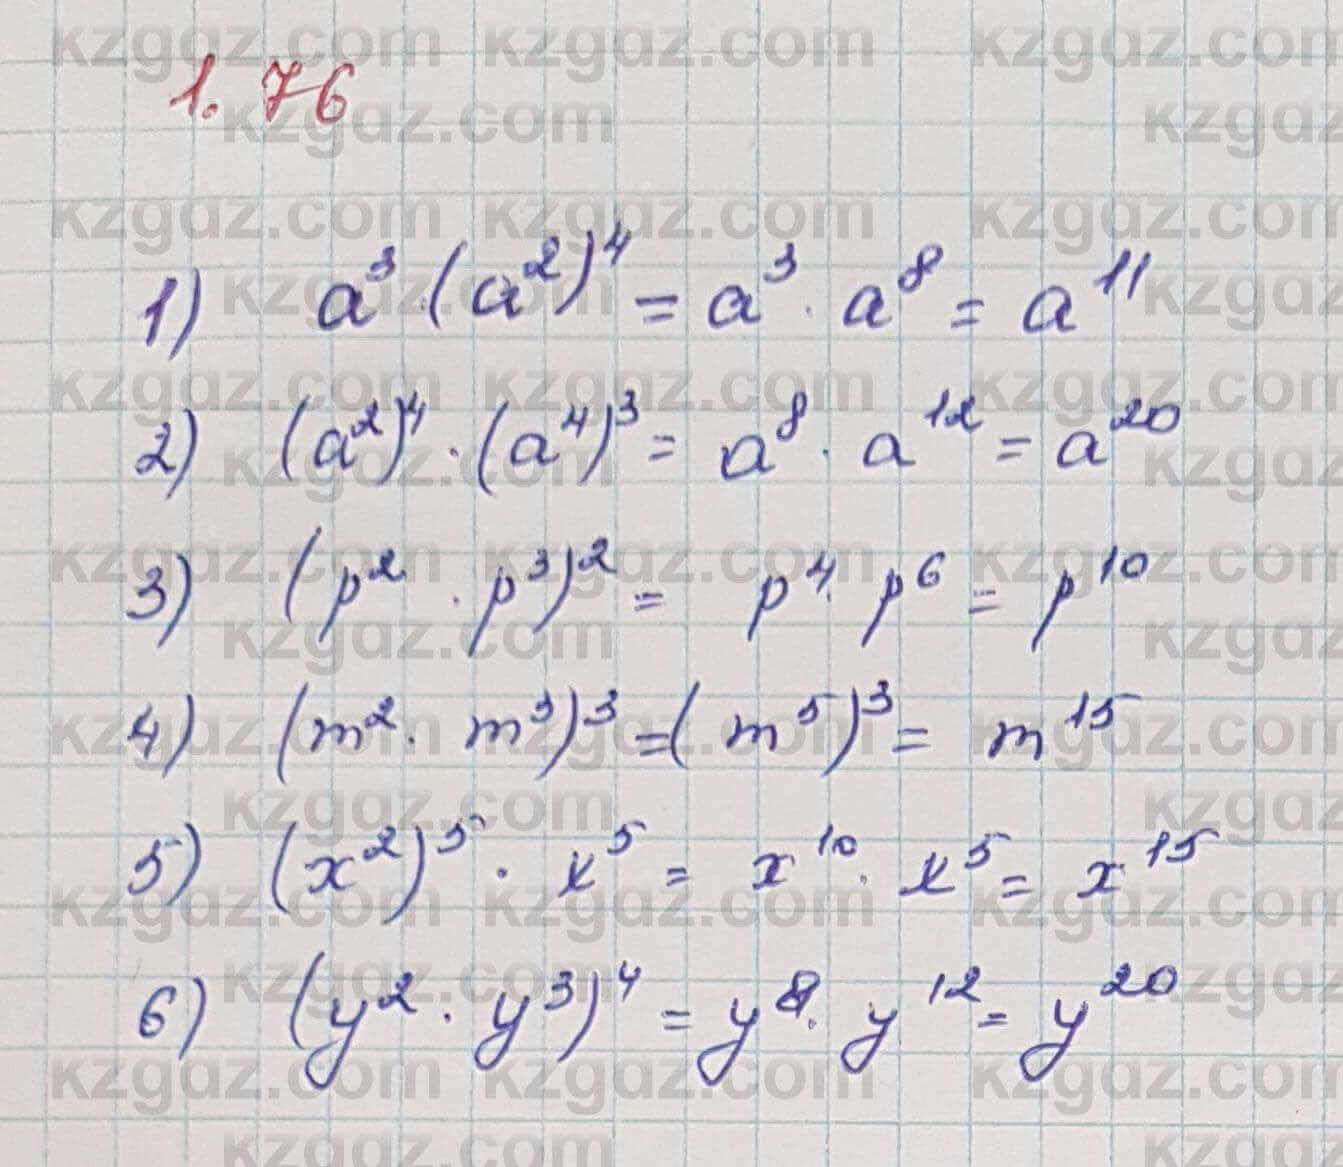 1.76
1) a³·(a²)⁴ = a³·a⁸ = a¹¹
2) (a²)⁴·(a⁴)³ = a⁸·a¹² = a²⁰
3) (p²·p³)² = p⁴·p⁶ = p¹⁰
4) (m²·m³)³ = (m⁵)³ = m¹⁵
5) (x²)⁵·x⁵ = x¹⁰·x⁵ = x¹⁵
6) (y²·y³)⁴ = y⁸·y¹² = y²⁰
kzgaz.com